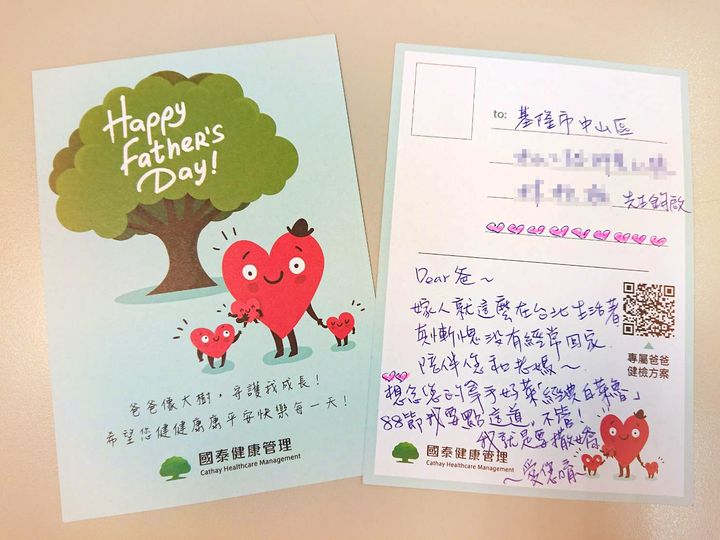 Happy
Father's
Day!
爸爸像大樹，守護我成長！
希望您健健康康平安快樂每一天！
國泰健康管理
Cathay Healthcare Management
to: 基隆市中山區
先生鈞啟
Dear 爸～
嫁人就這麼在台北生活著
真慚愧沒有經常回家
陪伴您和老媽～
想念您的拿手好菜「經典白菜魯」
88節我要點這道，不管！
我就是要撒嬌
～愛您唷～
專屬爸爸
健檢方案
國泰健康管理
Cathay Healthcare Management